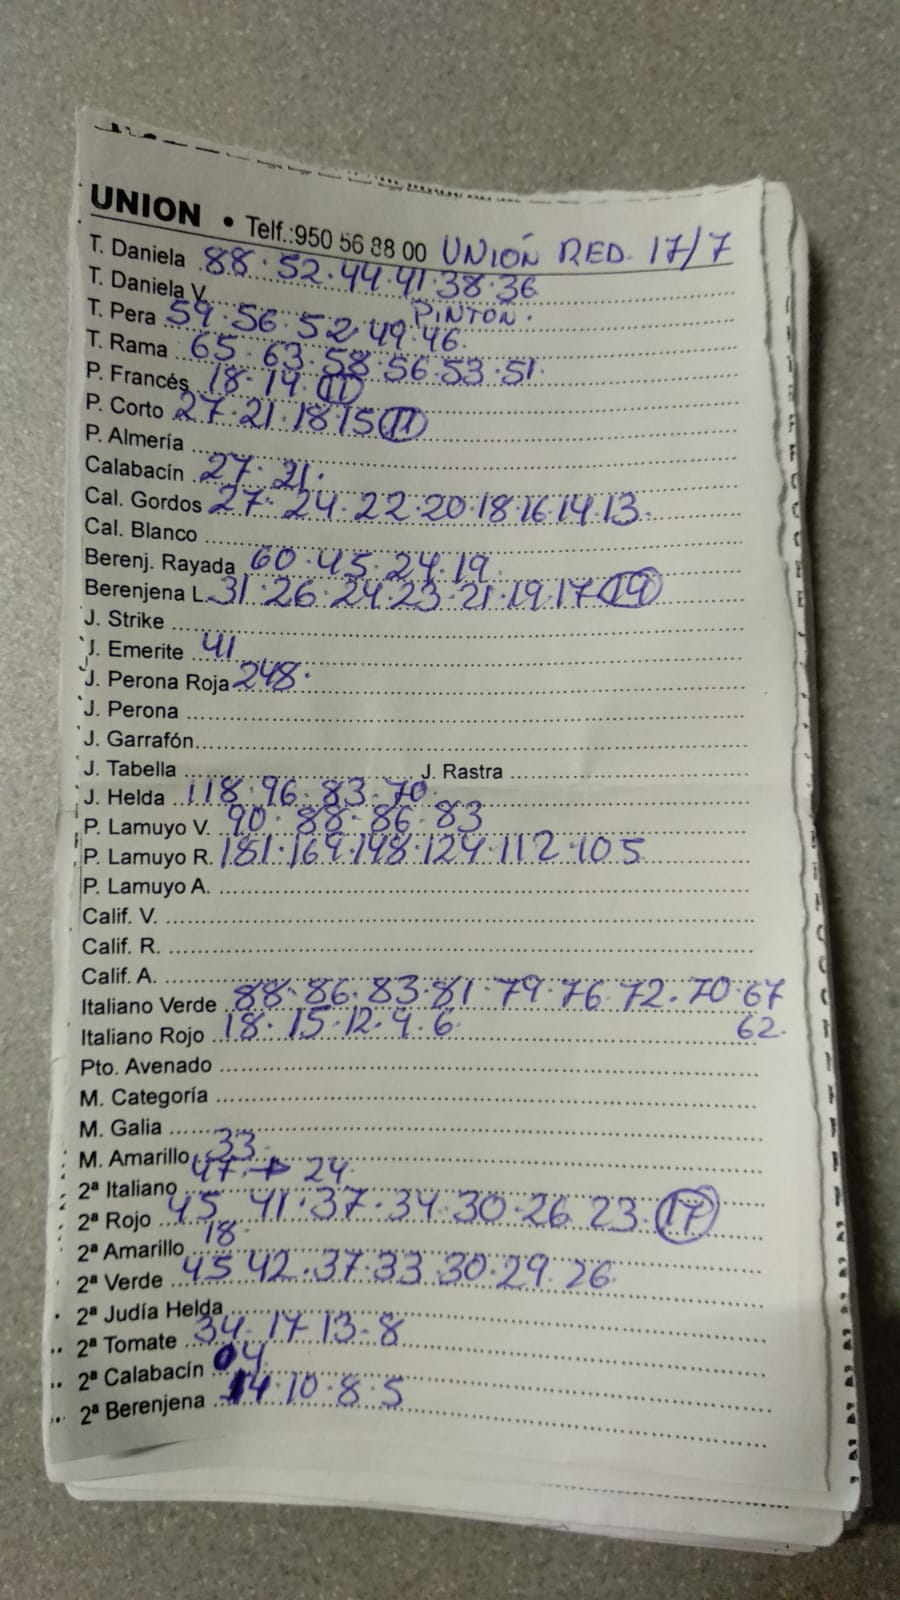 UNION • Telf.:950 56 88 00 UNIÓN RED. 17/7
T. Daniela 88. 52. 44. 41. 38. 36
T. Daniela V. PINTON.
T. Pera 59. 56. 52. 49. 46.
T. Rama 65. 63. 58. 56. 53. 51.
P. Francés 18. 14. 11
P. Corto 27. 21. 18. 15 11
P. Almería
Calabacín 27. 21.
Cal. Gordos 27. 24. 22. 20. 18. 16. 14. 13.
Cal. Blanco
Berenj. Rayada 60. 45. 24. 19.
Berenjena L. 31. 26. 24. 23. 21. 19. 17
J. Strike
J. Emerite 41
J. Perona Roja 248.
J. Perona
J. Garrafón
J. Tabella J. Rastra
J. Helda 118. 96. 83. 70.
P. Lamuyo V. 90. 88. 86. 83
P. Lamuyo R. 181. 169. 148. 124. 112. 105
P. Lamuyo A.
Calif. V.
Calif. R.
Calif. A.
Italiano Verde 88. 86. 83. 81. 79. 76. 72. 70. 67
62.
Italiano Rojo 18. 15. 12. 9. 6
Pto. Avenado
M. Categoría
M. Galia
M. Amarillo 33
2ª Italiano 47 → 24
2ª Rojo 45 41. 37. 34. 30. 26 23 17
2ª Amarillo 18.
2ª Verde 45 42. 37. 33. 30. 29. 26
2ª Judía Helda
2ª Tomate 34. 17 13. 8
2ª Calabacín 04
2ª Berenjena 14. 10. 8. 5